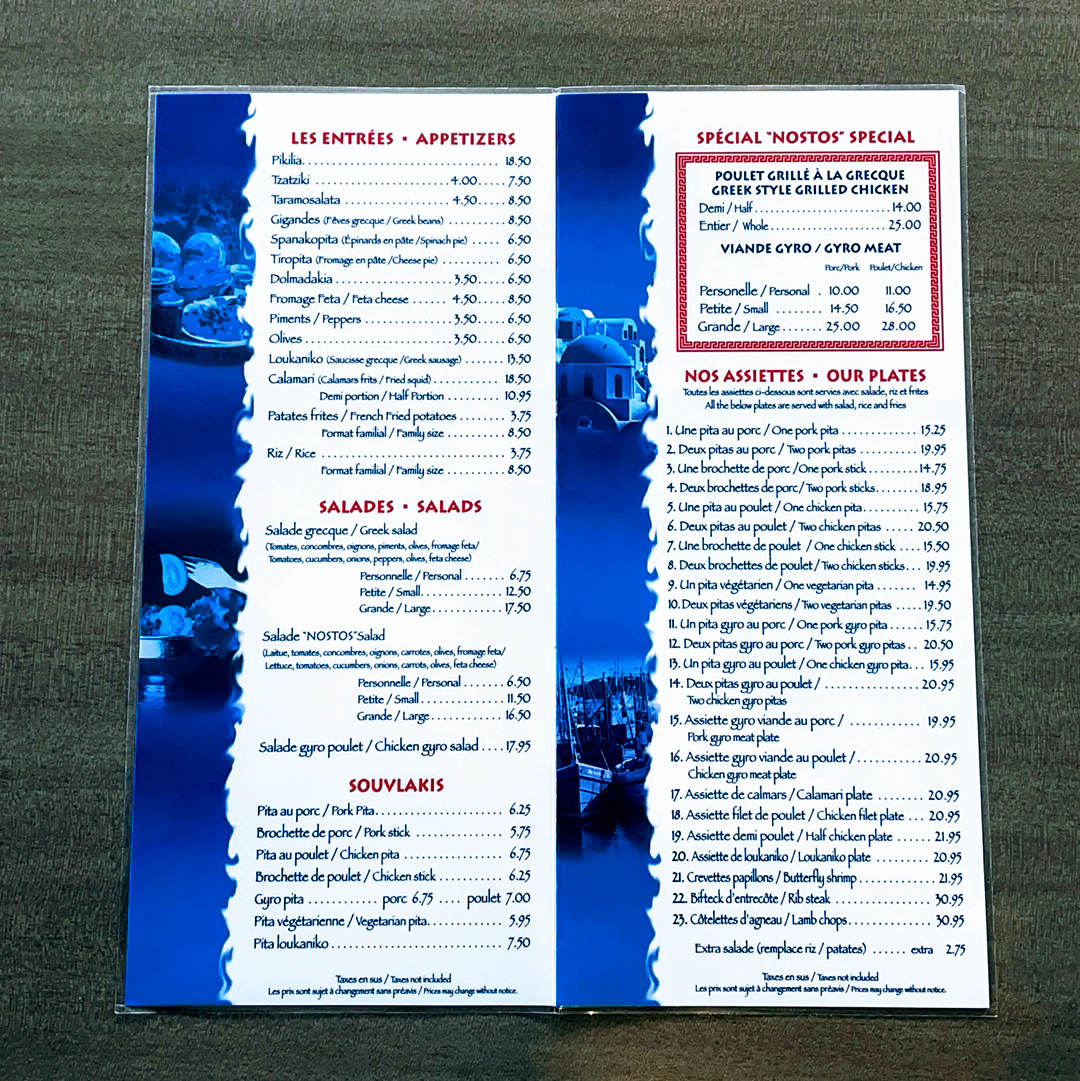 LES ENTRÉES • APPETIZERS
Pikilia. . . . . . . . . . . . . . . . . . . . . . . . . . . . . . 18.50
Tzatziki . . . . . . . . . . . . . . . . . . . . 4.00. . . . . 7.50
Taramosalata . . . . . . . . . . . . . . . . 4.50. . . . . 8.50
Gigandes (Fêves grecque / Greek beans) . . . . . . . . . 8.50
Spanakopita (Épinards en pâte /Spinach pie) . . . . . 6.50
Tiropita (Fromage en pâte /Cheese pie) . . . . . . . . . . 6.50
Dolmadakia . . . . . . . . . . . . . . . . . . 3.50. . . . . 6.50
Fromage Feta / Feta cheese . . . . . . 4.50. . . . . 8.50
Piments / Peppers . . . . . . . . . . . . . 3.50. . . . . 6.50
Olives . . . . . . . . . . . . . . . . . . . . . . 3.50. . . . . 6.50
Loukaniko (Saucisse grecque /Greek sausage) . . . . . . . 13.50
Calamari (Calamars frits / Fried squid) . . . . . . . . . . . . 18.50
Demi portion / Half Portion . . . . . . . . . . 10.95
Patates frites / French Fried potatoes . . . . . . . . . 3.75
Format familial / Family size . . . . . . . . . . 8.50
Riz / Rice . . . . . . . . . . . . . . . . . . . . . . . . . . . . 3.75
Format familial / Family size . . . . . . . . . . 8.50
SALADES • SALADS
Salade grecque / Greek salad
(Tomates, concombres, oignons, piments, olives, fromage feta/
Tomatoes, cucumbers, onions, peppers, olives, feta cheese)
Personnelle / Personal . . . . . . . 6.75
Petite / Small. . . . . . . . . . . . . . . 12.50
Grande / Large. . . . . . . . . . . . . 17.50
Salade "NOSTOS"Salad
(Laitue, tomates, concombres, oignons, carottes, olives, fromage feta/
Lettuce, tomatoes, cucumbers, onions, carrots, olives, feta cheese)
Personnelle / Personal . . . . . . . 6.50
Petite / Small. . . . . . . . . . . . . . . 11.50
Grande / Large. . . . . . . . . . . . . 16.50
Salade gyro poulet / Chicken gyro salad . . . . 17.95
SOUVLAKIS
Pita au porc / Pork Pita. . . . . . . . . . . . . . . . . . . 6.25
Brochette de porc / Pork stick . . . . . . . . . . . . . 5.75
Pita au poulet / Chicken pita . . . . . . . . . . . . . . . 6.75
Brochette de poulet / Chicken stick . . . . . . . . . . 6.25
Gyro pita . . . . . . . . . . . . porc 6.75 . . . . poulet 7.00
Pita végétarienne / Vegetarian pita. . . . . . . . . . . 5.95
Pita loukaniko . . . . . . . . . . . . . . . . . . . . . . . . . . 7.50
Taxes en sus / Taxes not included
Les prix sont sujet à changement sans préavis / Prices may change without notice.
SPÉCIAL "NOSTOS" SPECIAL
POULET GRILLÉ À LA GRECQUE
GREEK STYLE GRILLED CHICKEN
Demi / Half . . . . . . . . . . . . . . . . . . . . . 14.00
Entier / Whole . . . . . . . . . . . . . . . . . . 25.00
VIANDE GYRO / GYRO MEAT
Porc/Pork Poulet/Chicken
Personelle / Personal . 10.00 11.00
Petite / Small . . . . . . . . 14.50 16.50
Grande / Large . . . . . . . 25.00 28.00
NOS ASSIETTES • OUR PLATES
Toutes les assiettes ci-dessous sont servies avec salade, riz et frites
All the below plates are served with salad, rice and fries
1. Une pita au porc / One pork pita . . . . . . . . . . . . 15.25
2. Deux pitas au porc / Two pork pitas . . . . . . . . . . 19.95
3. Une brochette de porc /One pork stick . . . . . . . . 14.75
4. Deux brochettes de porc/ Two pork sticks. . . . . . . . 18.95
5. Une pita au poulet / One chicken pita. . . . . . . . . 15.75
6. Deux pitas au poulet / Two chicken pitas . . . . . 20.50
7. Une brochette de poulet / One chicken stick . . . . 15.50
8. Deux brochettes de poulet / Two chicken sticks. . . 19.95
9. Un pita végétarien / One vegetarian pita . . . . . . . 14.95
10. Deux pitas végétariens / Two vegetarian pitas . . . . . 19.50
11. Un pita gyro au porc / One pork gyro pita . . . . . . 15.75
12. Deux pitas gyro au porc / Two pork gyro pitas . . 20.50
13. Un pita gyro au poulet / One chicken gyro pita. . . 15.95
14. Deux pitas gyro au poulet / . . . . . . . . . . . . . . . 20.95
Two chicken gyro pitas
15. Assiette gyro viande au porc / . . . . . . . . . . . . 19.95
Pork gyro meat plate
16. Assiette gyro viande au poulet / . . . . . . . . . . . 20.95
Chicken gyro meat plate
17. Assiette de calmars / Calamari plate . . . . . . . . 20.95
18. Assiette filet de poulet / Chicken filet plate . . . 20.95
19. Assiette demi poulet / Half chicken plate . . . . . . 21.95
20. Assiette de loukaniko / Loukaniko plate . . . . . . . . . 20.95
21. Crevettes papillons / Butterfly shrimp . . . . . . . . . . . . 21.95
22. Bifteck d'entrecôte / Rib steak . . . . . . . . . . . . . . . . 30.95
23. Côtelettes d'agneau / Lamb chops. . . . . . . . . . . . . 30.95
Extra salade (remplace riz / patates) . . . . . . extra 2.75
Taxes en sus / Taxes not included
Les prix sont sujet à changement sans préavis / Prices may change without notice.